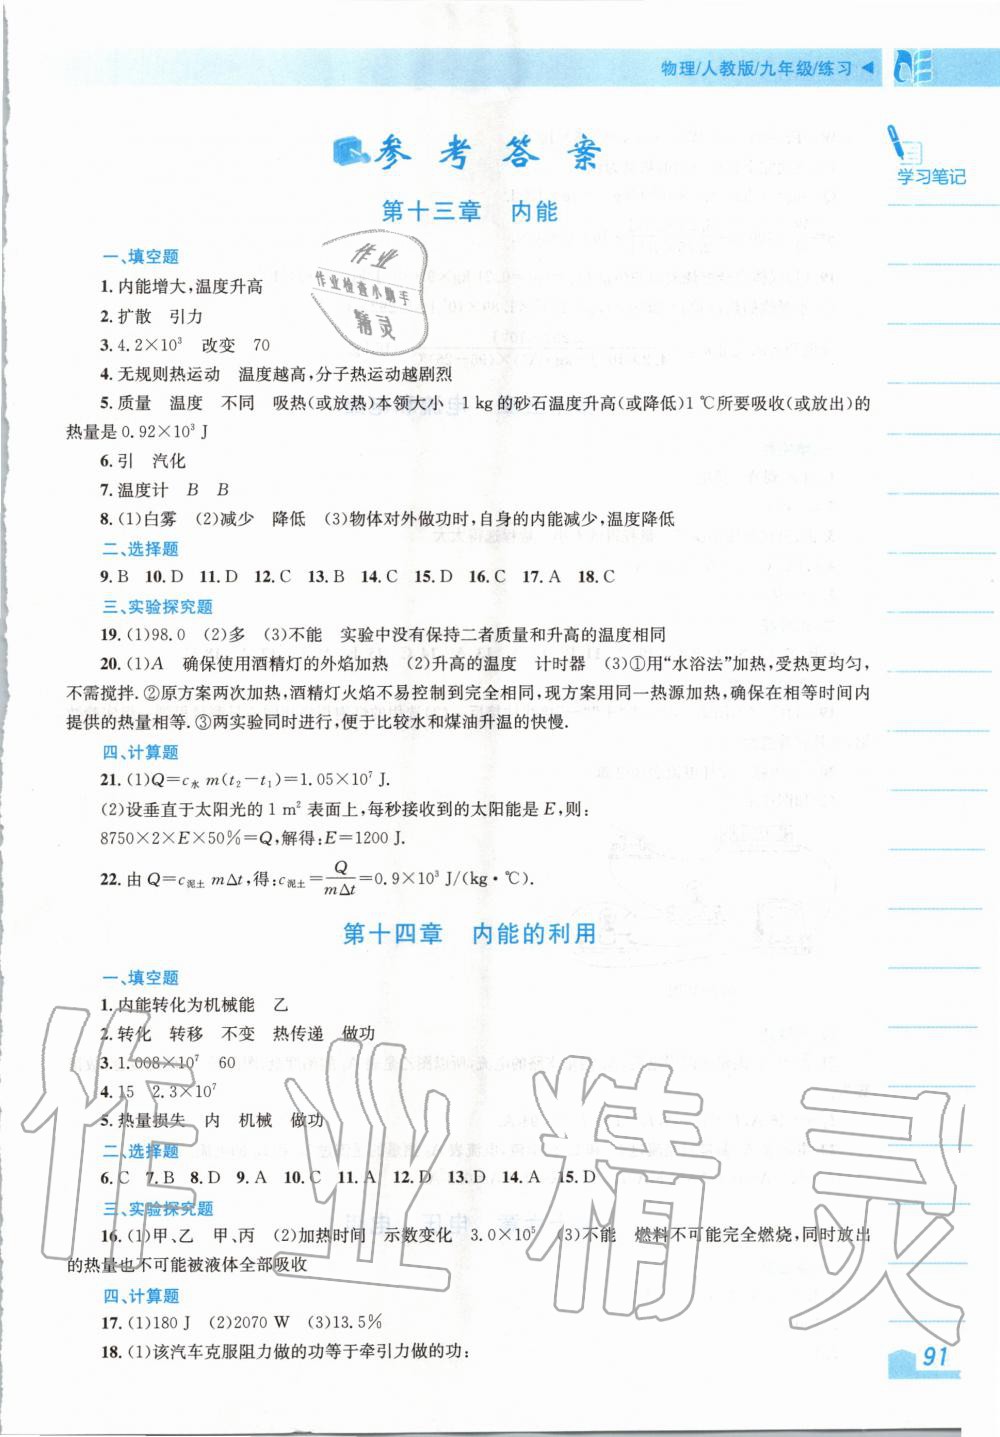 物理/人教版/九年级/练习
参考答案
学习笔记
第十三章 内能
一、填空题
1. 内能增大,温度升高
2. 扩散 引力
3. 4.2×10³ 改变 70
4. 无规则热运动 温度越高,分子热运动越剧烈
5. 质量 温度 不同 吸热(或放热)本领大小 1 kg的砂石温度升高(或降低)1 ℃所要吸收(或放出)的
热量是0.92×10³ J
6. 引 汽化
7. 温度计 B B
8. (1)白雾 (2)减少 降低 (3)物体对外做功时,自身的内能减少,温度降低
二、选择题
9. B 10. D 11. D 12. C 13. B 14. C 15. D 16. C 17. A 18. C
三、实验探究题
19. (1)98.0 (2)多 (3)不能 实验中没有保持二者质量和升高的温度相同
20. (1)A 确保使用酒精灯的外焰加热 (2)升高的温度 计时器 (3)①用“水浴法”加热,受热更均匀,
不需搅拌.②原方案两次加热,酒精灯火焰不易控制到完全相同,现方案用同一热源加热,确保在相等时间内
提供的热量相等.③两实验同时进行,便于比较水和煤油升温的快慢.
四、计算题
21. (1)Q=c水 m(t₂-t₁)=1.05×10⁷ J.
(2)设垂直于太阳光的1 m² 表面上,每秒接收到的太阳能是E,则:
8750×2×E×50%=Q,解得:E=1200 J.
22. 由Q=c泥土 mΔt,得:c泥土=Q/mΔt=0.9×10³ J/(kg·℃).
第十四章 内能的利用
一、填空题
1. 内能转化为机械能 乙
2. 转化 转移 不变 热传递 做功
3. 1.008×10⁷ 60
4. 15 2.3×10⁷
5. 热量损失 内 机械 做功
二、选择题
6. C 7. B 8. D 9. A 10. C 11. A 12. D 13. D 14. A 15. D
三、实验探究题
16. (1)甲、乙 甲、丙 (2)加热时间 示数变化 3.0×10⁵ (3)不能 燃料不可能完全燃烧,同时放出
的热量也不可能被液体全部吸收
四、计算题
17. (1)180 J (2)2070 W (3)13.5%
18. (1)该汽车克服阻力做的功等于牵引力做的功:
91
作业
作业检查小助手
精灵
作业精灵